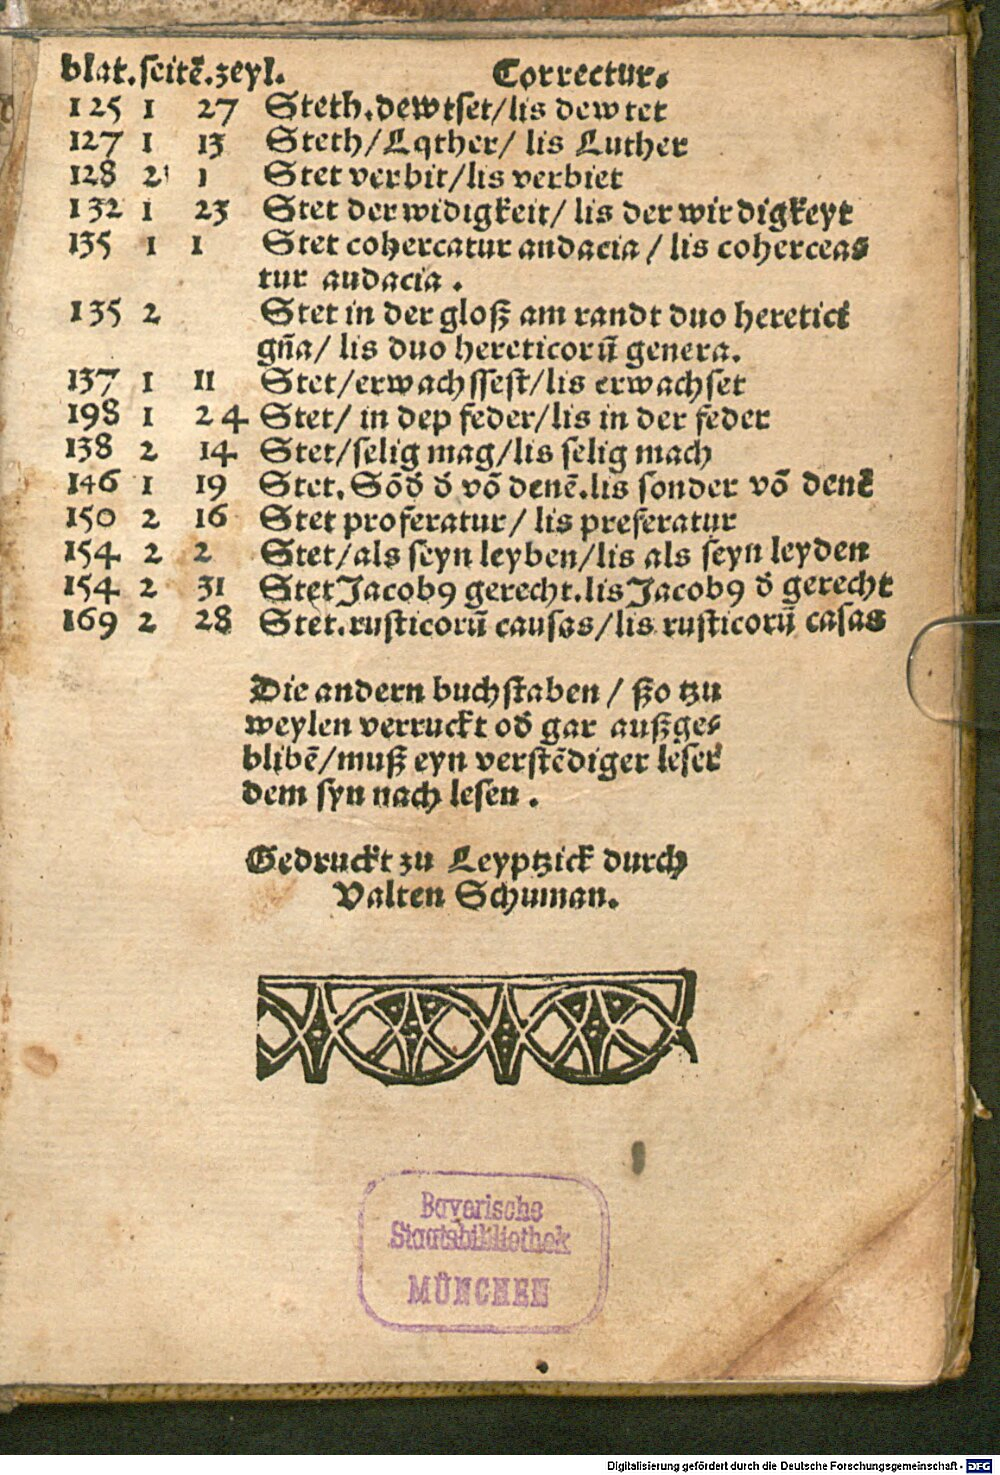 blat.seitē.zeyl. Correctur.
125 1 27 Steth.dewtset/lis dewtet
127 1 13 Steth/Lqther/ lis Luther
128 2 1 Stet verbit/lis verbiet
132 1 23 Stet der widigkeit/ lis der wirdigkeyt
135 1 1 Stet cohercatur andacia / lis coherceas
tur audacia .
135 2 Stet in der gloß am randt duo heretici
gn̄a/ lis duo hereticorū genera.
137 1 11 Stet/erwachssest/lis erwachset
198 1 24 Stet/ in dep feder/lis in der feder
138 2 14 Stet/selig mag/lis selig mach
146 1 19 Stet. Sōd̄ d̄ vō denē.lis sonder vō denē
150 2 16 Stet proferatur/ lis preferatur
154 2 2 Stet/als seyn leyben/lis als seyn leyden
154 2 31 Stet Jacobꝰ gerecht.lis Jacobꝰ d̄ gerecht
169 2 28 Stet.rusticorū causas/lis rusticorū casas
Die andern buchstaben / ßo tzu
weylen verruckt od̄ gar außge⸗
blibē/muß eyn verstēdiger leser
dem syn nach lesen .
Gedruckt zu Leyptzick durch
Valten Schuman.
Bayerische
Staatsbibliothek
MÜNCHEN
Digitalisierung gefördert durch die Deutsche Forschungsgemeinschaft - DFG